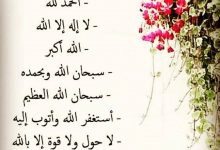 - الحمد لله
- لا إله إلا الله
- الله أكبر
- سبحان الله وبحمده
- سبحان الله العظيم
- أستغفر الله وأتوب إليه
- لا حول ولا قوة إلا بالله